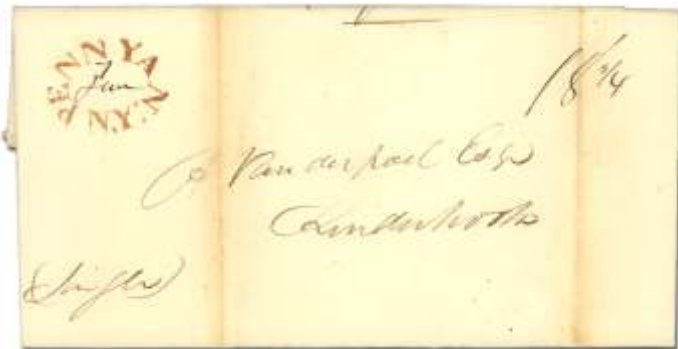 PENN YAN
N.Y.
Jun
18 3/4
Vanderpoel Esqr
Kinderhook
Single